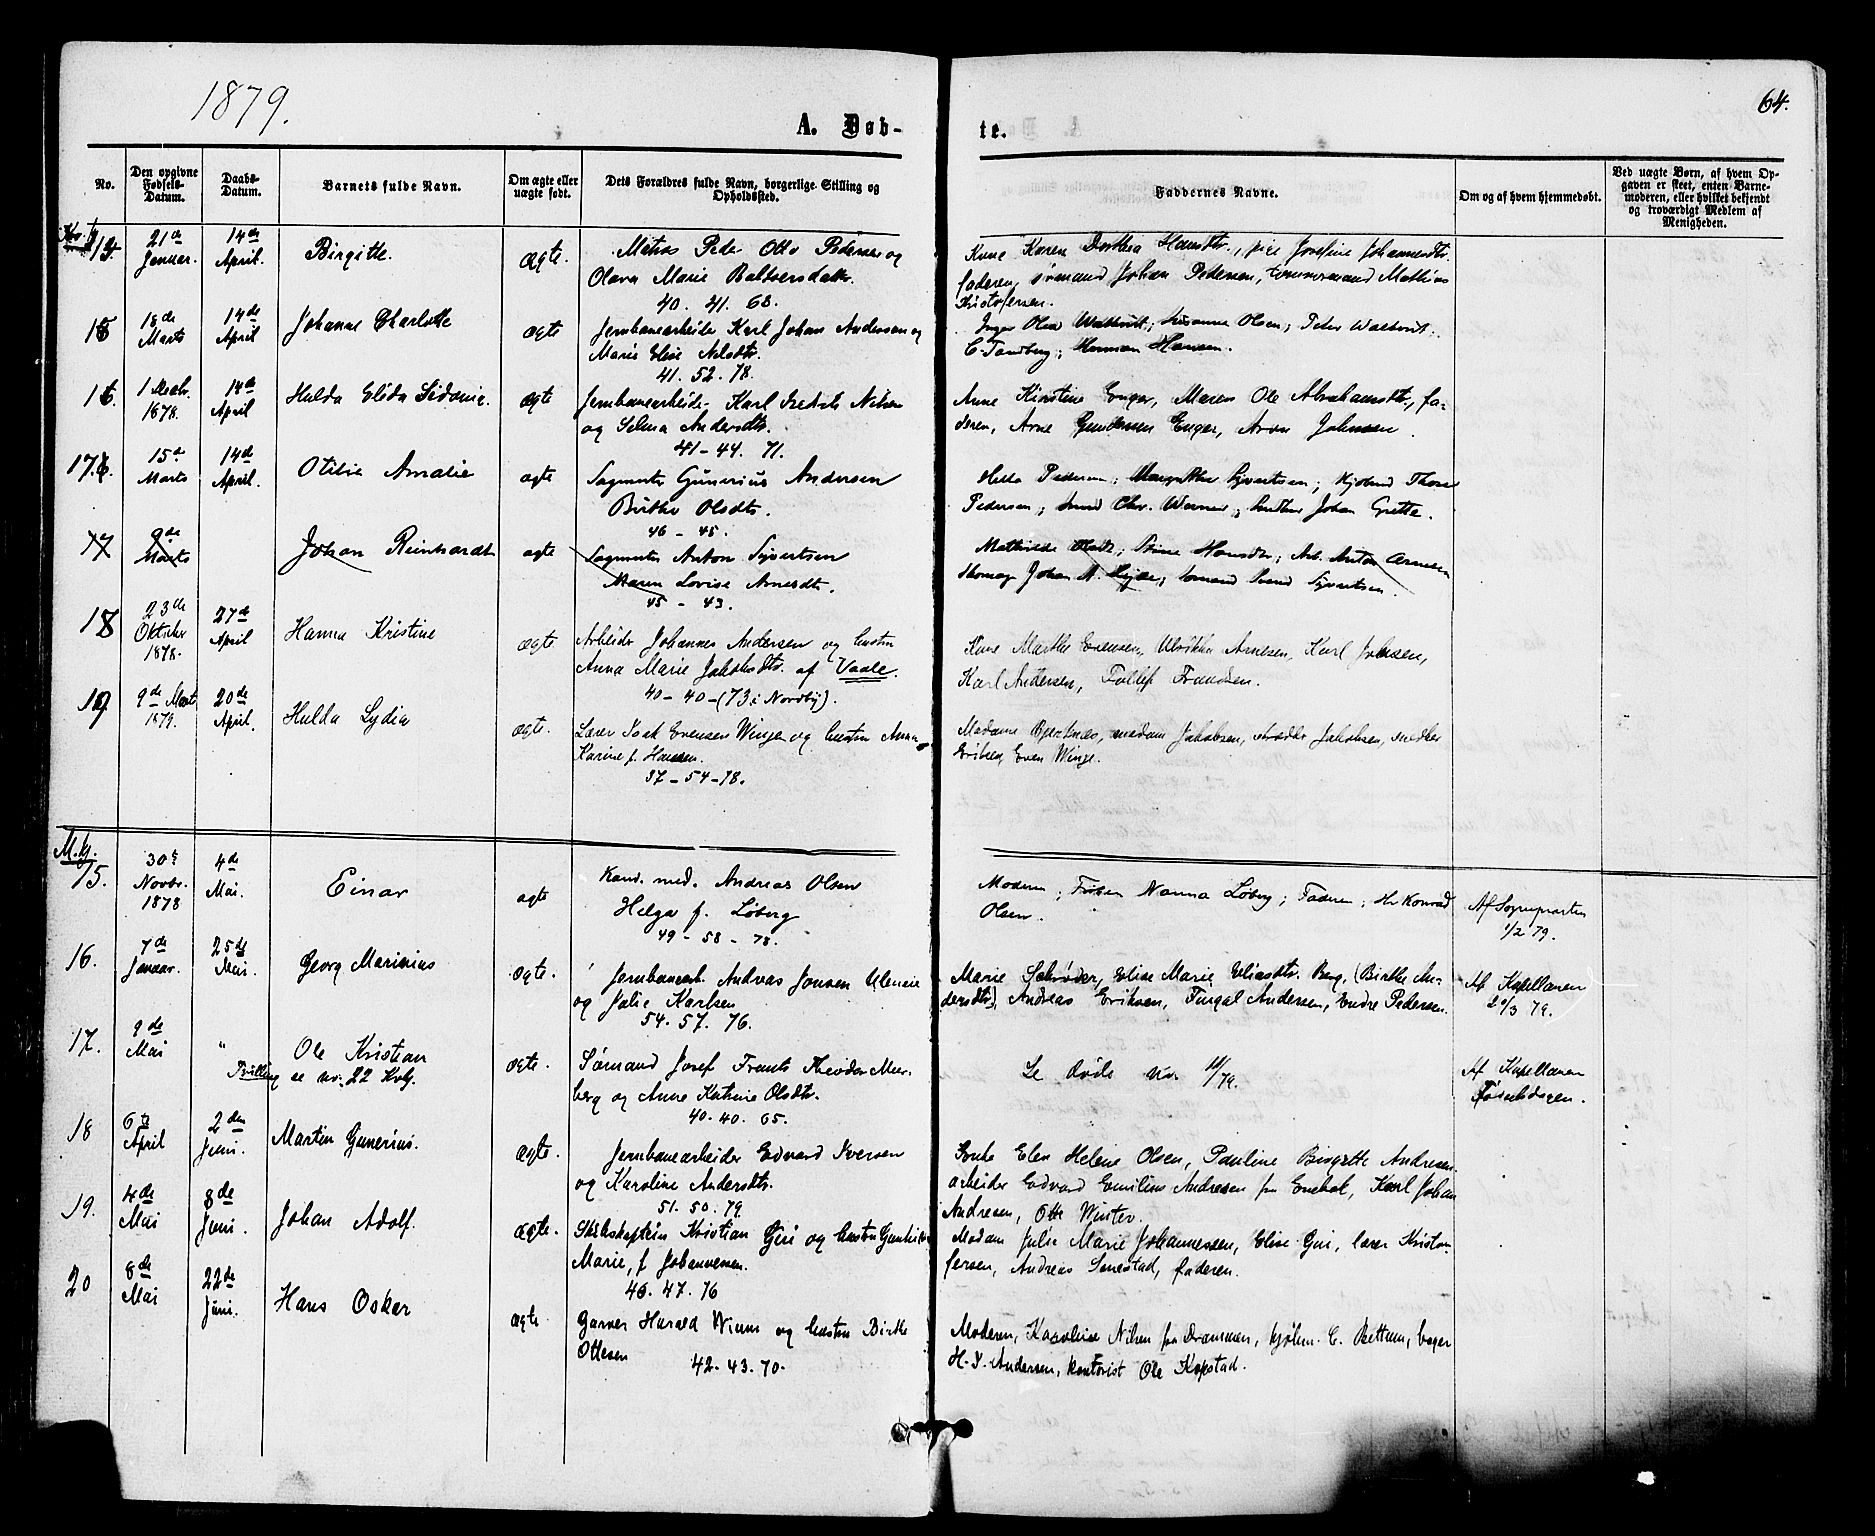 1879.
64.
A. Døb-
te.
No.
Den opgivne Fødsels-Datum.
Daabs-Datum.
Barnets fulde Navn.
Om ægte eller uægte født.
Dets Forældres fulde Navn, borgerlige Stilling og Opholdssted.
Faddernes Navne.
Om og af hvem hjemmedøbt.
Ved uægte Børn, af hvem Opgaven er skeet, enten Barnemoderen, eller hvilket bekjendt og troværdigt Medlem af Menigheden.
14. 21de Januar. 14de April. Birgitte. Ægte. Matros Peder Otto Pedersen og
Olava Marie
40. 41. 68.
Kone Karen Dorthea Hansdtr., pige Josefine Johannesdtr.
faderen, sømand Johan Pedersen, tømmermand Mathias
Kristofersen.
15 18de Marts 14de April Johanne Charlotte ægte Jernbanearbeider Karl Johan Anderssen og
Marie Elise Nilsdtr.
41. 52. 78.
Olsen; Peter
C. Tandberg; Herman Hansen.
16. 1 Decbr. 1878. 14de April Hulda Elida Sidonie. ægte Jernbanearbeider Karl Fredrik Nilsen
og Selma Andersdtr.
41-44. 71.
Anne Kirstine Enger, Maren Ole Abrahamsdtr., fa-
deren, Arne Gundersen Enger, Aron Johnsen
17. 15de Marts 14de April. Otilie Amalie ægte Sagmester Gunerius Andersen
Birthe Olsdtr.
46 - 45.
Pedersen; Syvertsen; Thore
Pedersen; Johan Grette.
17 9de Marts Johan Reinhardt ægte Sagmester Anton Syvertsen
Maren Lovise Arnesdtr.
45 - 43.
Mathilde Olsdtr; Stine Hansdtr; Arb. Anton Arnesen
Johan A. ; Svend Syvertsen.
18 23de Oktober 1878. 27de April Hanna Kristine ægte Arbeider Johannes Andersen og hustru
Anna Marie Jakobsdtr. af Vaale.
40 - 40 - (73 i Nordby).
Kone Marthe Evensen, Ulrikke Arnesen, Karl Johnsen,
Karl Andersen, Tollef Frandsen.
19 9de Marts 1879. 20de April. Hulda Lydia ægte. Lærer Isak Evensen Winge og hustru Anna
Karine f. Hansen.
37 - 54 - 78.
Madame Bjertnæs, madam Jakobsen, Jakobsen, snedker
Eriksen, Even Winge.
M.kj.
15. 30te Novbr. 1878 4de Mai. Einar ægte Kand. med. Andreas Olsen
Helga f. Løberg
49 - 58 - 78.
Moderen; Frøken Nanna Løberg; Faderen; Hr Konrad
Olsen.
Af Sognepresten
1/2 79.
16. 7de Januar. 25de Mai. Georg Marinius ægte. Jernbanearb. Andreas Jonsen
og Julie Karlsen
54. 57. 76.
Marie Schrøder, Elise Marie Eliasdtr. Berg, (Birthe An-
dersdtr), Andreas Eriksen, Fingal Andersen, Endre Pedersen.
Af Kapellanen
20/3 79.
17. 9de Mai " Ole Kristian
Tvilling se no. 22 Kvkj.
ægte. Sømand Josef Frants Theodor Meer-
berg og Anne Katrine Olsdtr.
40. 40. 65.
Se døde no 11/79.
Af Kapellanen
Fødselsdagen.
18 6te April 2den Juni. Martin Gunerius. ægte. Jernbanearbeider Edvard Iversen
og Karoline Andersdtr.
51. 50. 79.
Enke Elen Helene Olsen, Pauline Birgitte Andresen
arbeider Edvard Emilius Andresen fra Enebak, Karl Johan
Andresen, Otto Winter.
19. 4de Mai 8de Juni. Johan Adolf. ægte. Skibskaptein Kristian Giri og hustru
Marie, f Johannessen.
46. 47. 76
Madam Julie Marie Johannessen, Elise Giri, lærer Kristof-
fersen, Andreas Senestad, faderen.
20 8de Mai 22de Juni. Hans Oskar ægte. Garver Harald Wium og hustru Birthe
Ottesen
42. 43. 70.
Moderen, Karoline Nilsen fra Drammen, kjøbm. C. Bettum, bager
H. J. Andersen, kontorist Ole Kopstad.